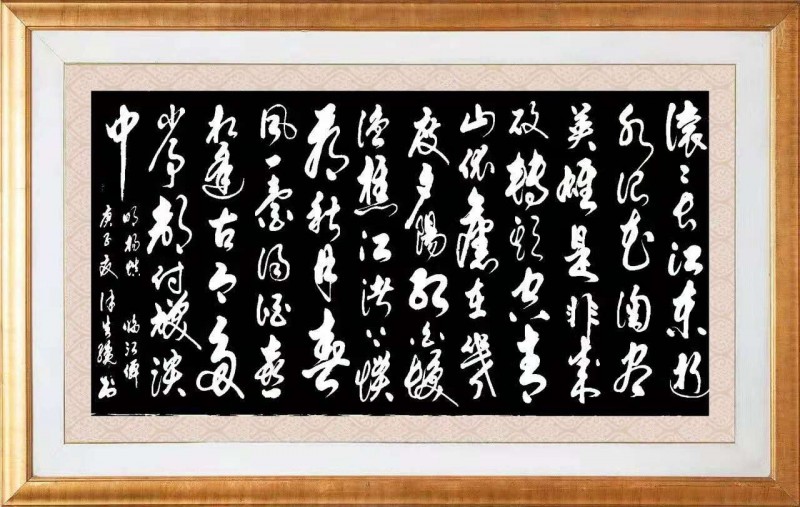 滚滚长江东逝
水浪花淘尽
英雄是非成
败轉头空青
山依舊在幾
度夕陽红白髮
渔樵江渚上惯
看秋月春
风一壶浊酒喜
相逢古今多
少事都付笑谈
中
明杨慎 临江仙
庚子夏